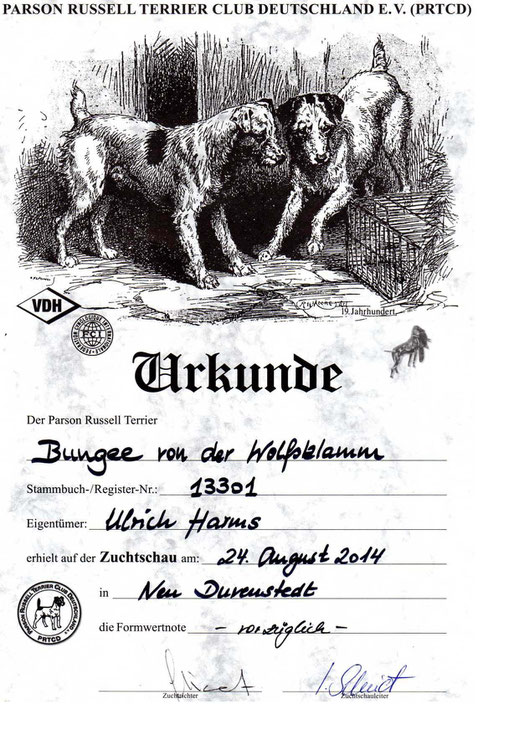 PARSON RUSSELL TERRIER CLUB DEUTSCHLAND E.V. (PRTCD)
19.Jahrhundert
VDH
Urkunde
Der Parson Russell Terrier
Bungee von der Wolfsklamm
Stammbuch-/Register-Nr.: 13301
Eigentümer: Ulrich Harms
erhielt auf der Zuchtschau am: 24. August 2014
in Neu Duvenstedt
die Formwertnote - vorzüglich -
PARSON RUSSELL TERRIER CLUB DEUTSCHLAND e.V.
PRTCD
Zuchtrichter
Zuchtschauleiter